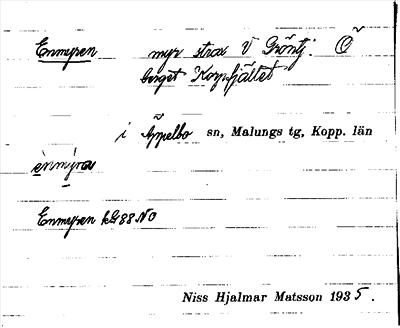 Enmyren myr strax V Gröntj. Ö
berget Koppfjältet
i Äppelbo sn, Malungs tg, Kopp. län
ènmýra
Enmyren kG 88 NO
Niss Hjalmar Matsson 1935.